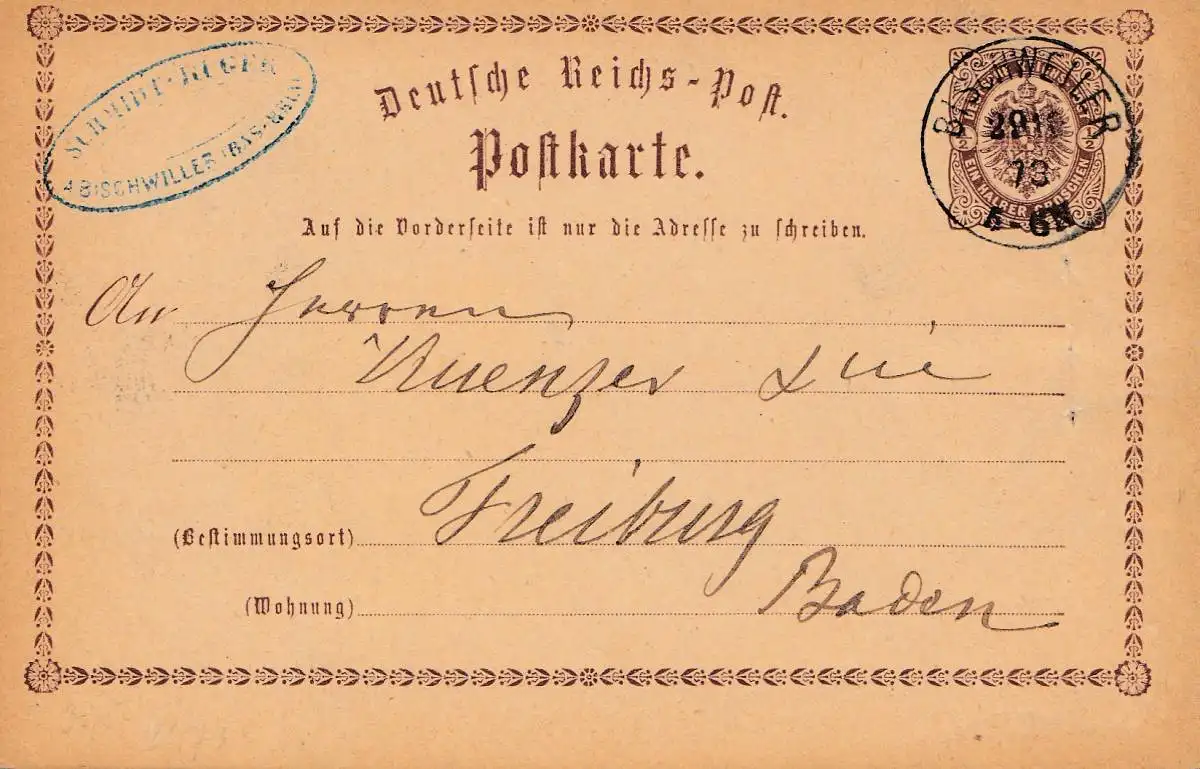 SCHMIDT-RUGER
A BISCHWILLER (BAS-RHIN)
Deutsche Reichs-Post.
Postkarte.
BISCHWEILER
73
5-6N
EIN HALBER GROSCHEN
1/2
1/2
Auf die Vorderseite ist nur die Adresse zu schreiben.
An Herren
Kuenzer & Cie
(Bestimmungsort) Freiburg
(Wohnung) Baden